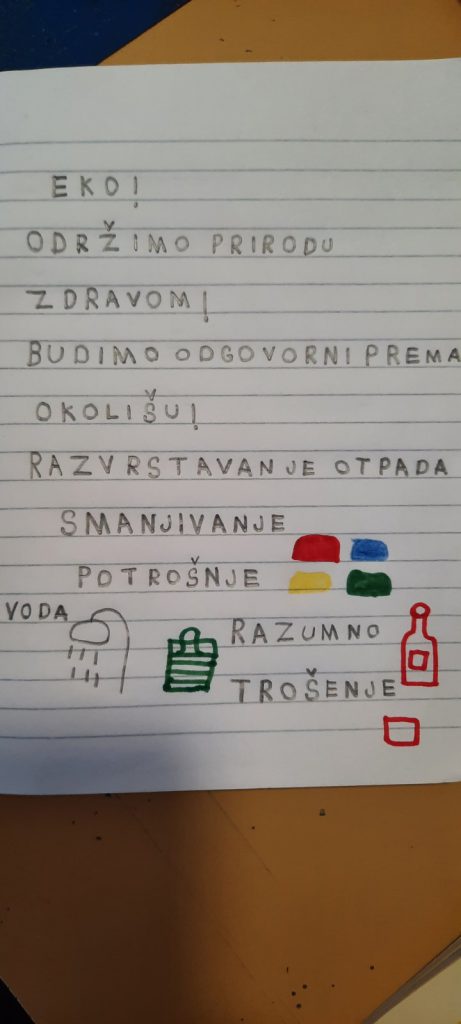 EKO!
ODRŽIMO PRIRODU
ZDRAVOM!
BUDIMO ODGOVORNI PREMA
OKOLIŠU!
RAZVRSTAVANJE OTPADA
SMANJIVANJE
POTROŠNJE
VODA
RAZUMNO
TROŠENJE